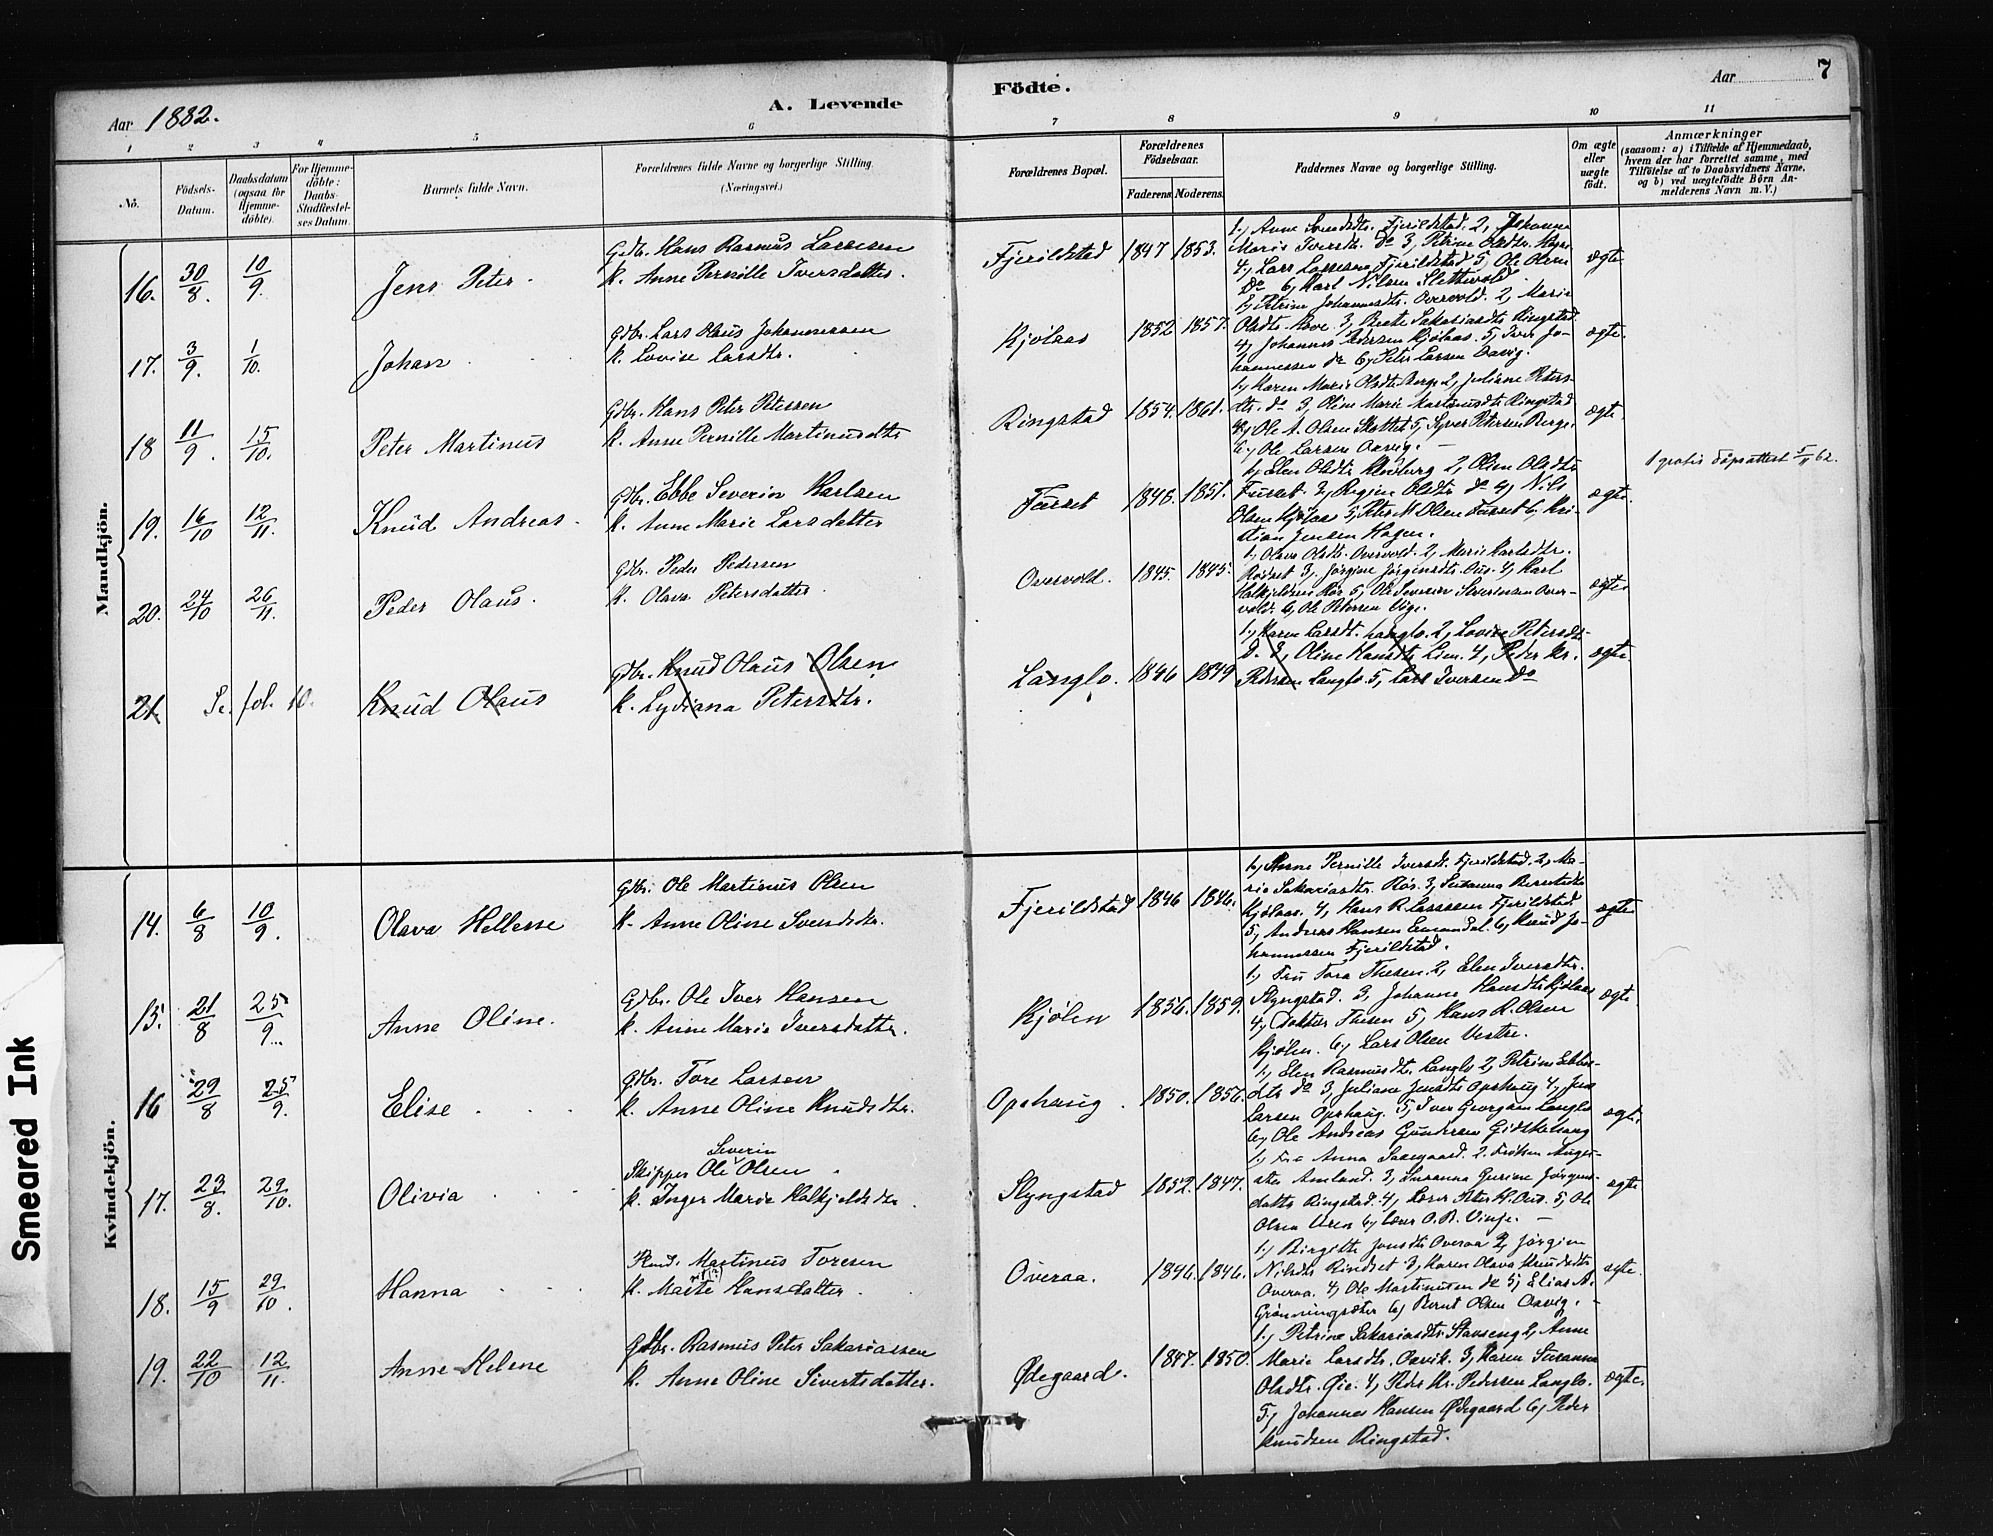 Aar 1882.
A. Levende
Födte.
Aar 7
1 2 3 4 5 6 7 8 9 10 11
No.
Födsels-Datum.
Daabsdatum (ogsaa for Hjemme-döbte).
For Hjemme-döbte: Daabs-Stadfæstel-ses Datum.
Barnets fulde Navn.
Forældrenes fulde Navne og borgerlige Stilling.
(Næringsvei.)
Forældrenes Bopæl.
Forældrenes Födselsaar.
Faderens. Moderens.
Faddernes Navne og borgerlige Stilling.
Om ægte eller uægte födt.
Anmærkninger
(saasom: a) i Tilfælde af Hjemmedaab, hvem der har forrettet samme, med Tilföielse af to Daabsvidners Navne, og b) ved uægtefödte Börn Anmelderens Navn m. V.)
Mandkjön.
16. 30/8. 10/9. Jens Peter. Gdbr. Hans Rasmus Larssen
K. Anne Pernille Iversdatter. Fjerildstad 1847 1853. ægte
1, Anne Svendsdtr. Fjerildstad. 2, Johanne
Marie Iversdtr. do 3, Petrine Olsdtr.
4, Lars Larssen Fjerildstad 5, Ole Olsen
do 6, Karl Nilsen Slettevold.
17. 3/9. 1/10. Johan. Gdbr. Lars Olaus Johannessen
K. Lovise Larsdtr. Kjölaas 1852 1857. ægte.
1, Petrine Johannesdtr. Overvold. 2, Marie
Olsdtr. 3, Berte Sakariasdtr. Ringstad
4, Johannes Pedersen Kjölaas. 5, Iver Jo-
hannessen do 6, Peter Larsen Aavig.
18 11/9. 15/10. Peter Martinus Gdbr. Hans Peter Petersen
K. Anne Pernille Martinusdtr. Ringstad 1854. 1861. ægte
1, Karen Marie Olsdtr. Berge 2, Juliane Peters-
dtr. do 3, Oline Marie Martinusdtr. Ringstad
4, Ole A. Olsen 5, Syver Petersen Berge.
6, Ole Larsen Aavig.
19. 16/10 12/11. Knud Andreas. Gdbr. Ebbe Severin Karlsen
K. Anne Marie Larsdatter Furset 1848. 1851. ægte.
1, Elen Olsdtr. 2, Oline Olsdtr.
Furset. 3, Regine Olsdtr. do 4, Nils
Olsen Kjölaas 5, Peter M. Olsen Furset 6, Kri-
stian Jensen Hagen.
1 gratis dåpsattest 5/11 62.
20. 24/10 26/11. Peder Olaus. Gdbr. Peder Pedersen
K. Olava Petersdatter. Overvold. 1845. 1845. ægte
1, Olava Olsdtr. Overvold. 2, Marie
Rödset 3, Jörgine Jörgensdtr. Aus. 4, Karl
Halkjeldsen Rös 5, Ole Severin Sivertsen Over-
vold. 6, Ole Petersen Vige.
21. Se fol. 10. Knud Olaus Gdbr. Knud Olaus Olsen
K. Lydiana Petersdtr. Langlo. 1846 1849 ægte.
1, Karen Larsdtr. Langlo. 2, Lovise Petersdtr.
do. 3, Oline Hansdtr. Lien. 4, Peder Kr.
Pedersen Langlo 5, Lars Iversen do
Kvindekjön.
14. 6/8 10/9. Olava Hellesne Gdbr. Ole Martinus Olsen
K. Anne Oline Svendsdtr. Fjerildstad 1846 1846. ægte
1, Anne Pernille Iversdtr. Fjerildstad. 2, Ma-
rie Sakariasdtr. Rös. 3, Susanna Berntsdtr.
Kjölaas. 4, Hans R. Larssen Fjerildstad.
5, Andreas Hansen 6, Knud Jo-
hannessen Fjerildstad.
15. 21/8 25/9 Anne Oline. Gdbr. Ole Iver Hansen
K. Anne Marie Iversdatter. Kjölen 1856. 1859. ægte
1, Fru Tora Thesen. 2, Elen Iversdtr.
Slyngstad. 3, Johanne Hansdtr. Kjölaas
4, Doktor Thesen 5, Hans R. Olsen
Kjölen. 6, Lars Olsen Vestre.
16 29/8 25/9. Elise Gdbr. Tore Larsen
K. Anne Oline Knudsdtr. Opshaug. 1850. 1856. ægte.
1, Elen Rasmusdtr. Langlo 2, Petrine Ebbes-
dtr. do 3, Juliane Jensdtr. Opshaug 4, Jens
Larsen Opshaug. 5, Iver Georgsen Langlo
6, Ole Andreas Gundersen Gidskehaug
17. 23/8. 29/10. Olivia Skipper Ole Severin Olsen
K. Inger Marie Halkjeldsdtr. Slyngstad 1852. 1847. ægte
1, Fru Anna Saaegaard. 2. Fröken Augu-
sta Amland. 3, Susanna Gurine Jörgens-
datter Ringstad. 4, Peter H. Aus. 5, Ole
Olsen 6, O. R. Vinje.
18. 15/9 29/10. Hanna Martinus Toresen
K. Marte Hansdatter. Overaa. 1846. 1846. ægte.
1, Birgitte Jonsdtr. Overaa 2, Jörgine
Nilsdtr. Rindset 3, Karen Olava Knudsdtr.
Overaa. 4, Ole Martinussen do 5, Elias A.
Grönningsæter 6, Bernt Olsen Aavig.
19. 22/10 12/11. Anne Helene Gdbr. Rasmus Peter Sakariassen
K. Anne Oline Sivertsdatter. Ødegaard. 1847. 1850. ægte.
1, Petrine Sakariasdtr. Stavseng 2, Anne
Marie Larsdtr. Aavik. 3, Karen Susanna
Olsdtr. Øie. 4, Peder Kr. Pedersen Langlo.
5, Johannes Hansen Ødegaard 6, Peder
Knudsen Ringstad.
Smeared Ink